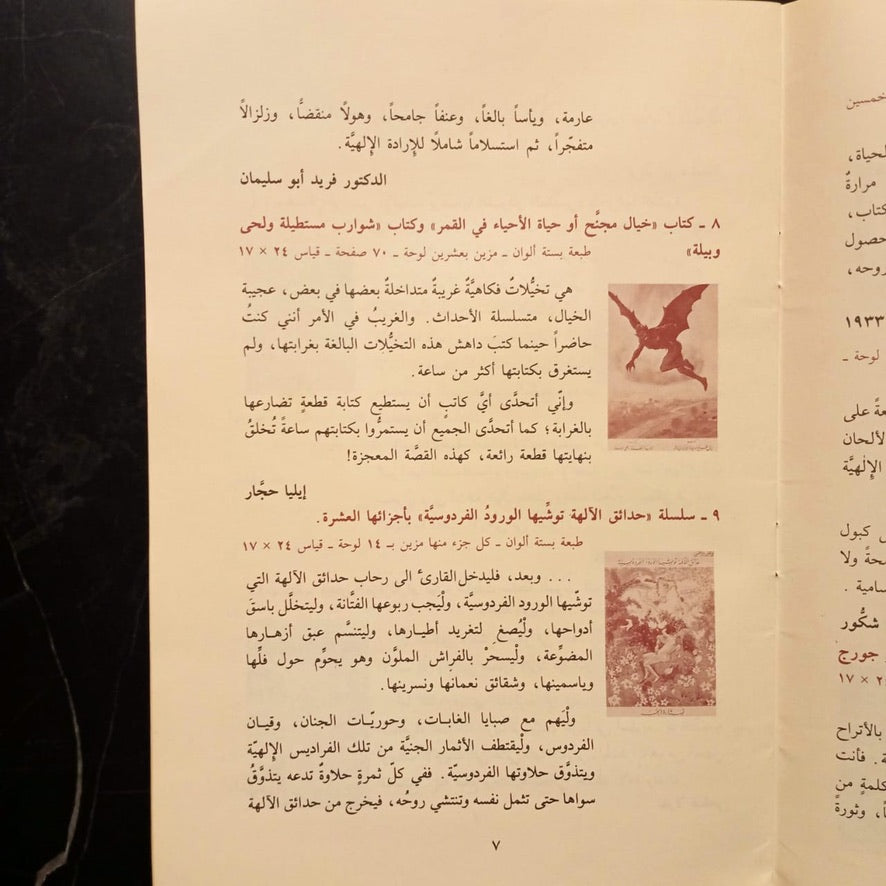 عارمة، ويأساً بالغاً، وعنفاً جامحاً، وهولاً منقضًّا، وزلزالاً
متفجّراً، ثم استسلاماً شاملاً للإرادة الإلهيَّة.
الدكتور فريد أبو سليمان
٨ ـ كتاب «خيال مجنَّح أو حياة الأحياء في القمر» وكتاب «شوارب مستطيلة ولحى
وبيلة» طبعة بستة ألوان ـ مزين بعشرين لوحة ـ ٧٠ صفحة ـ قياس ٢٤ × ١٧
هي تخيُّلاتٌ فكاهيَّةٌ غريبةٌ متداخلةٌ بعضها في بعض، عجيبة
الخيال، متسلسلة الأحداث. والغريبُ في الأمر أنني كنتُ
حاضراً حينما كتبَ داهش هذه التخيُّلات البالغة بغرابتها، ولم
يستغرق بكتابتها أكثر من ساعة.
وإنّي أتحدَّى أيَّ كاتبٍ أن يستطيع كتابة قطعةٍ تضارعها
بالغرابة؛ كما أتحدَّى الجميع أن يستمرُّوا بكتابتهم ساعةً تُخلقُ
بنهايتها قطعة رائعة، كهذه القصَّة المعجزة!
إيليا حجَّار
٩ ـ سلسلة «حدائق الآلهة توشِّيها الورودُ الفردوسيَّة» بأجزائها العشرة.
طبعة بستة ألوان ـ كل جزء منها مزين بـ ١٤ لوحة ـ قياس ٢٤ × ١٧
... وبعد، فليدخل القارئ الى رحاب حدائق الآلهة التي
توشّيها الورود الفردوسيَّة، ولْيَجب ربوعها الفتَّانة، وليتخلَّل باسقَ
أدواحها، ولْيُصغِ لتغريد أطيارها، وليتنسَّم عبق أزهارها
المضوِّعة، ولْيسحرْ بالفراش الملوَّن وهو يحوِّم حول فلِّها
وياسمينها، وشقائق نعمانها ونسرينها.
ولْيَهم مع صبايا الغابات، وحوريّات الجنان، وقيان
الفردوس، ولْيقتطف الأثمار الجنيَّة من تلك الفراديس الإلهيّة
ويتذوَّق حلاوتها الفردوسيّة. ففي كلّ ثمرةٍ حلاوةٌ تدعه يتذوَّقُ
سواها حتى تثمل نفسه وتنتشي روحُه، فيخرج من حدائق الآلهة
٧
خمسين
لحياة،
مرارةُ
كتاب،
حصول
روحه،
١٩٣٣
لوحة ـ
عةً على
الألحان
الإلهيَّة
كبول
حةً ولا
سامية.
شكُّور
جورج
١٧ × ٢
بالأتراح
ة. فأنت
كلمةٍ من
وثورةً